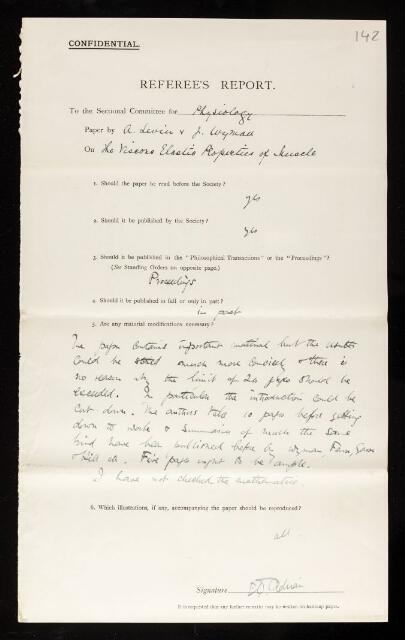 142
CONFIDENTIAL.
REFEREE'S REPORT.
To the Sectional Committee for Physiology
Paper by A. Levin & J. Wyman
On The Viscous Elastic Properties of Muscle
1. Should the paper be read before the Society?
yes
2. Should it be published by the Society?
yes
3. Should it be published in the "Philosophical Transactions" or the "Proceedings"?
(See Standing Orders on opposite page.)
Proceedings
4. Should it be published in full or only in part?
in part
5. Are any material modifications necessary?
The paper contains important material but the results
could be stated much more concisely & there is
no reason why the limit of 24 pages should be
exceeded. In particular the introduction could be
cut down. The authors take 10 pages before getting
down to work & summaries of much the same
kind have been published before by Wyman, Fenn, Gasser
& Hill etc. Five pages ought to be ample.
I have not checked the mathematics.
6. Which illustrations, if any, accompanying the paper should be reproduced?
all
Signature E D Adrian
It is requested that any further remarks may be written on